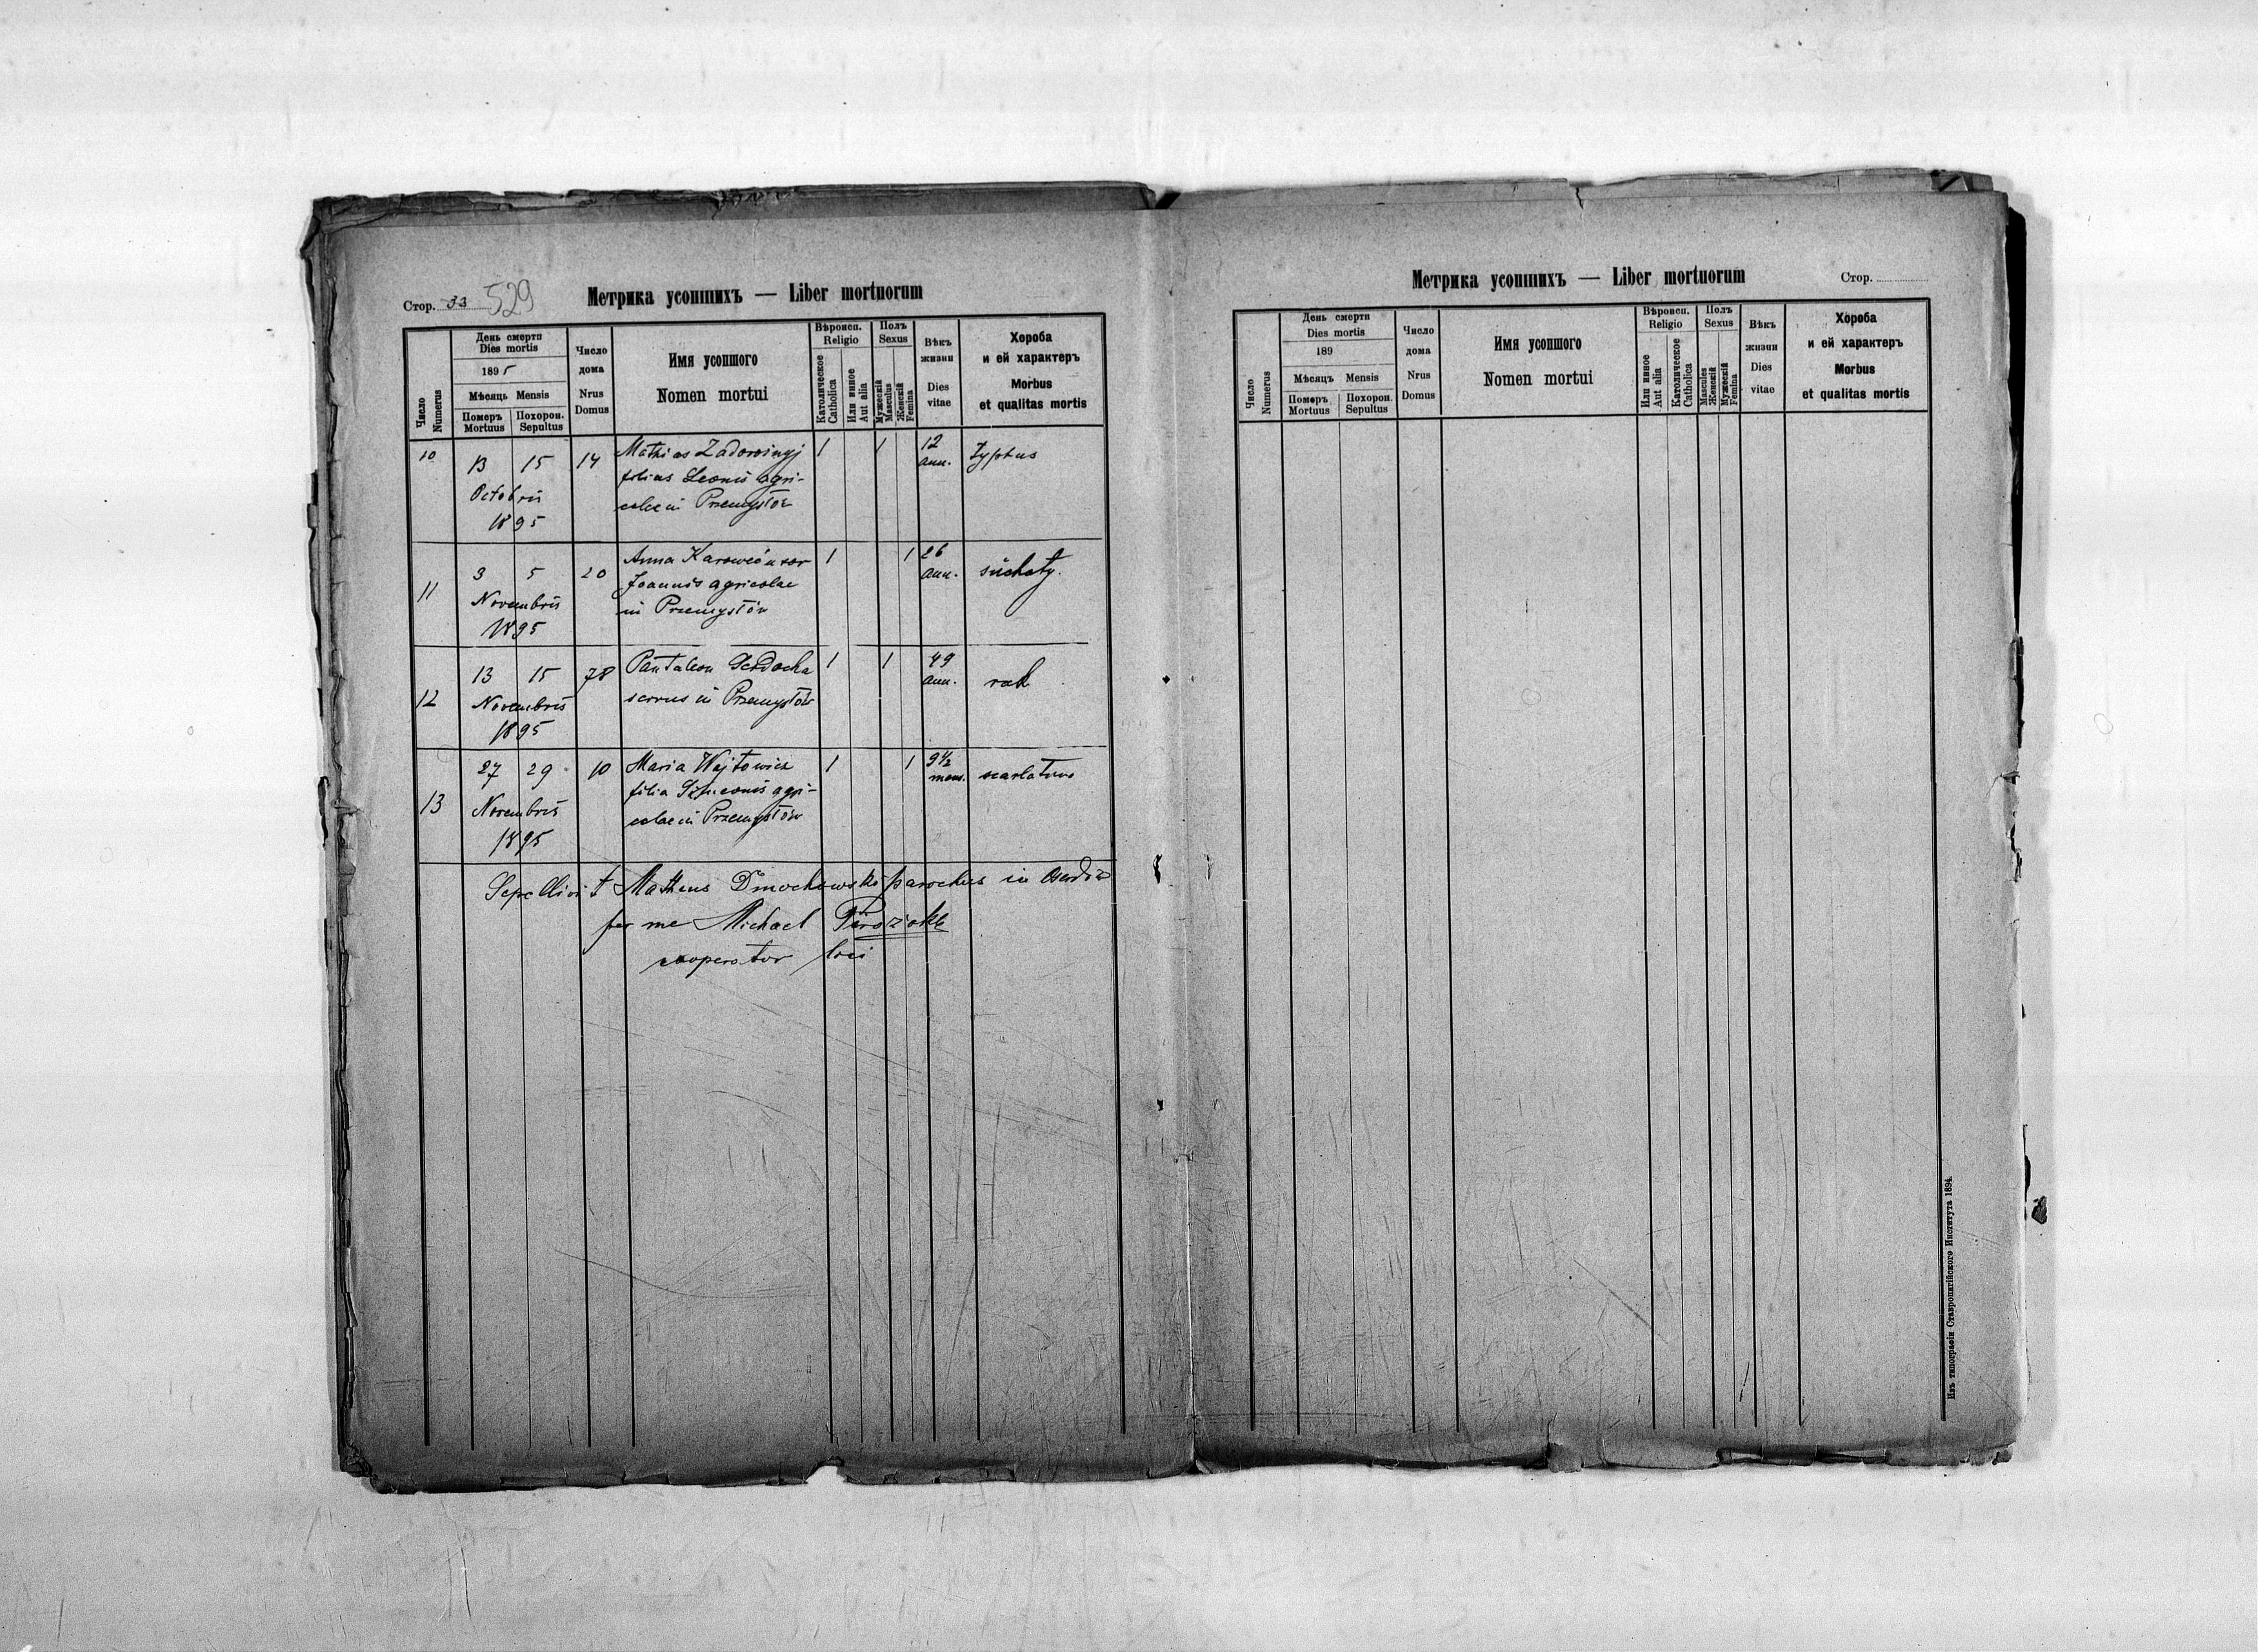 Стор. 33 529
Метрика усопшихъ — Liber mortuorum
Число Numerus
День смерти
Dies mortis
1895
Мѣсяць Mensis
Померъ Mortuus
Похорон. Sepultus
Число дома
Nrus Domus
Имя усопшого
Nomen mortui
Вѣроисп. Religio
Католическое Catholica
Или инное Aut alia
Полъ Sexus
Мужескій Masculus
Женскій Femina
Вѣкъ жизни
Dies vitae
Хороба и ей характеръ
Morbus et qualitas mortis
10 13 15 14 Mathias Zadorowinyj 1 1 12 Typhus
Octobris filius Leonis agri- ann.
1895 colae in Przemysłów
11 3 5 20 Anna Karowiec uxor 1 1 26 suchoty.
Novembris Joannis agricolae ann.
1895 in Przemysłów
12 13 15 78 Pantaleon 1 1 49 rak
Novembris servus in Przemysłów ann.
1895
13 27 29 10 Maria Wojtowicz 1 1 9 1/2 scarlatina
Novembris filia Simeonis agri- mens.
1895 colae in Przemysłów
Sepellivit Matheus Dmochowski parochus in
per me Michael
cooperator loci
Метрика усопшихъ — Liber mortuorum
Стор.
Число Numerus
День смерти
Dies mortis
189
Мѣсяцъ Mensis
Померъ Mortuus
Похорон. Sepultus
Число дома
Nrus Domus
Имя усопшого
Nomen mortui
Вѣроисп. Religio
Или инное Aut alia
Католическое Catholica
Полъ Sexus
Mascules Женскій
Мужескій Femina
Вѣкъ жизни
Dies vitae
Хороба и ей характеръ
Morbus et qualitas mortis
Изъ типографіи Ставропигійского Института 1894.